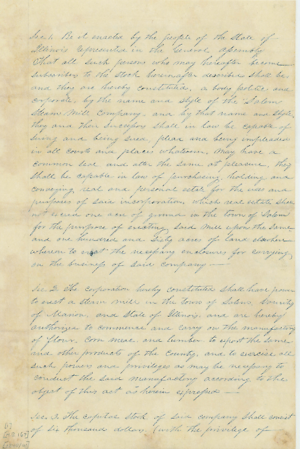 Sec. 1. Be it enacted by the people of the State of
Illinois represented in the General Assembly
That all such persons who may hereafter become
subscribers to the stock hereinafter described shall be
and they are hereby constituted, a body politic and
corporate, by the name and style of the Salem
Steam Mill Company, and by that name and style,
they and their successors shall in law be capable of
suing and being sued, plead and being impleaded
in all courts and places whatsoever, may have a
common seal and alter the same at pleasure, they
shall be capable in law of purchasing holding and
conveying real and personal estate for the use and
purposes of said incorporation, which real estate shall
not exceed one acre of ground in the town of Salem
for the purpose of erecting said Mill upon the same,
and one hundred and sixty acres of land elsewhere
whereon to the necessary for carrying
on the business of said company
Sec. 2. The corporation hereby constituted shall have power
to erect a steam mill in the town of Salem, County
of Marion, and State of Illinois, and are hereby
authorized to commence and carry on the manufactory
of flour, corn meal, and lumber to export the same
and other products of the county, and to exercise all
such powers and privileges as may be necessary to
conduct the said manufactory according to the
object of this act as herein expressed
Sec. 3. The capital stock of said company shall consist
of six thousand dollars (with the privilege of